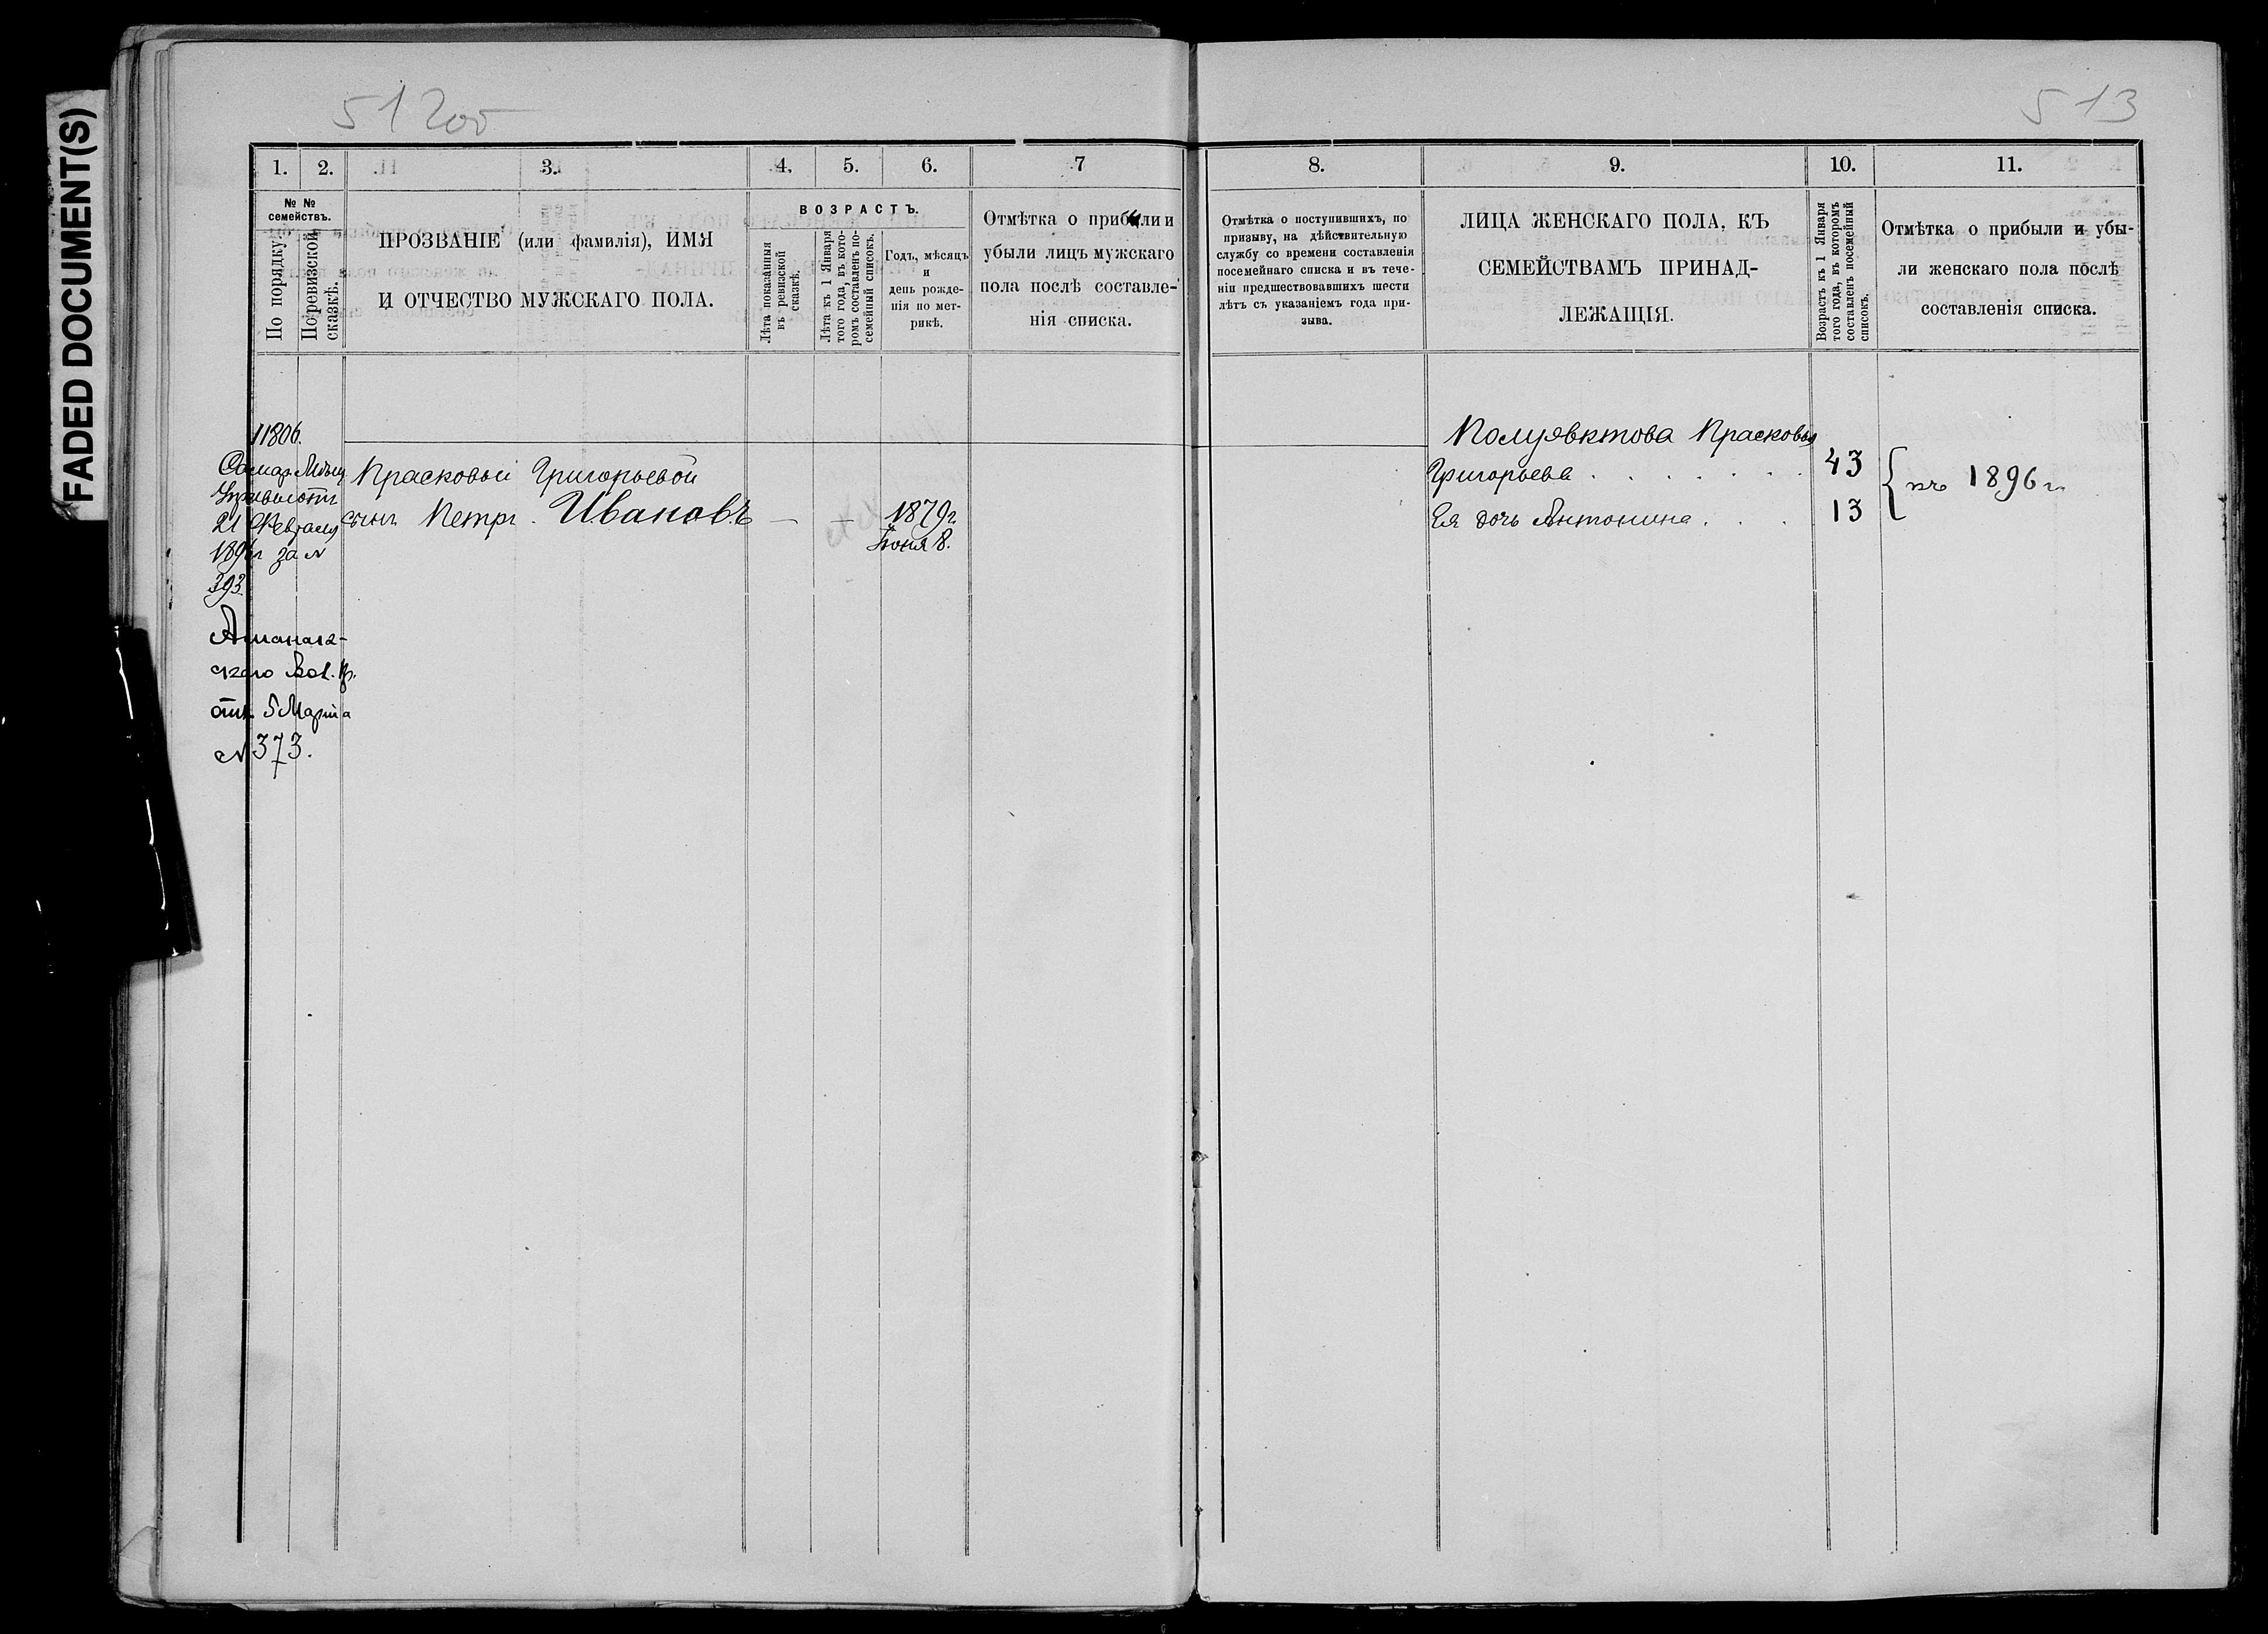 FADED DOCUMENT(S)
512об
513
1. 2. 3. 4. 5. 6. 7
№ №
семействъ.
По порядку.
По ревизской
сказкѣ.
ПРОЗВАНІЕ (или фамилія), ИМЯ
И ОТЧЕСТВО МУЖСКАГО ПОЛА.
ВОЗРАСТЪ.
Лѣта показанныя
въ ревизской
сказкѣ.
Лѣта къ 1 Января
того года, въ кото-
ромъ составленъ по-
семейный списокъ.
Годъ, мѣсяцъ
и
день рожде-
нія по мет-
рикѣ.
Отмѣтка о прибыли и
убыли лицъ мужскаго
пола послѣ составле-
нія списка.
11806.
Самар. Мѣщ
Управы отъ
21 Февраля
1896г за №
393.
ского Вол. Пр.
отъ 5 Марта
№ 373.
Прасковьи Григорьевой
сынъ Петръ Ивановъ — — 1879г.
Іюня 8.
8. 9. 10. 11.
Отмѣтка о поступившихъ, по
призыву, на дѣйствительную
службу со времени составленія
посемейнаго списка и въ тече-
ніи предшествовавшихъ шести
лѣтъ съ указаніемъ года при-
зыва.
ЛИЦА ЖЕНСКАГО ПОЛА, КЪ
СЕМЕЙСТВАМЪ ПРИНАД-
ЛЕЖАЩІЯ.
Возрастъ къ 1 Января
того года, въ которомъ
составленъ посемейный
списокъ.
Отмѣтка о прибыли и убы-
ли женскаго пола послѣ
составленія списка.
Полуяктова Прасковья
Григорьева . . . . . . . 43
Ея дочь Антонина . . . 13
{ 1896 г.